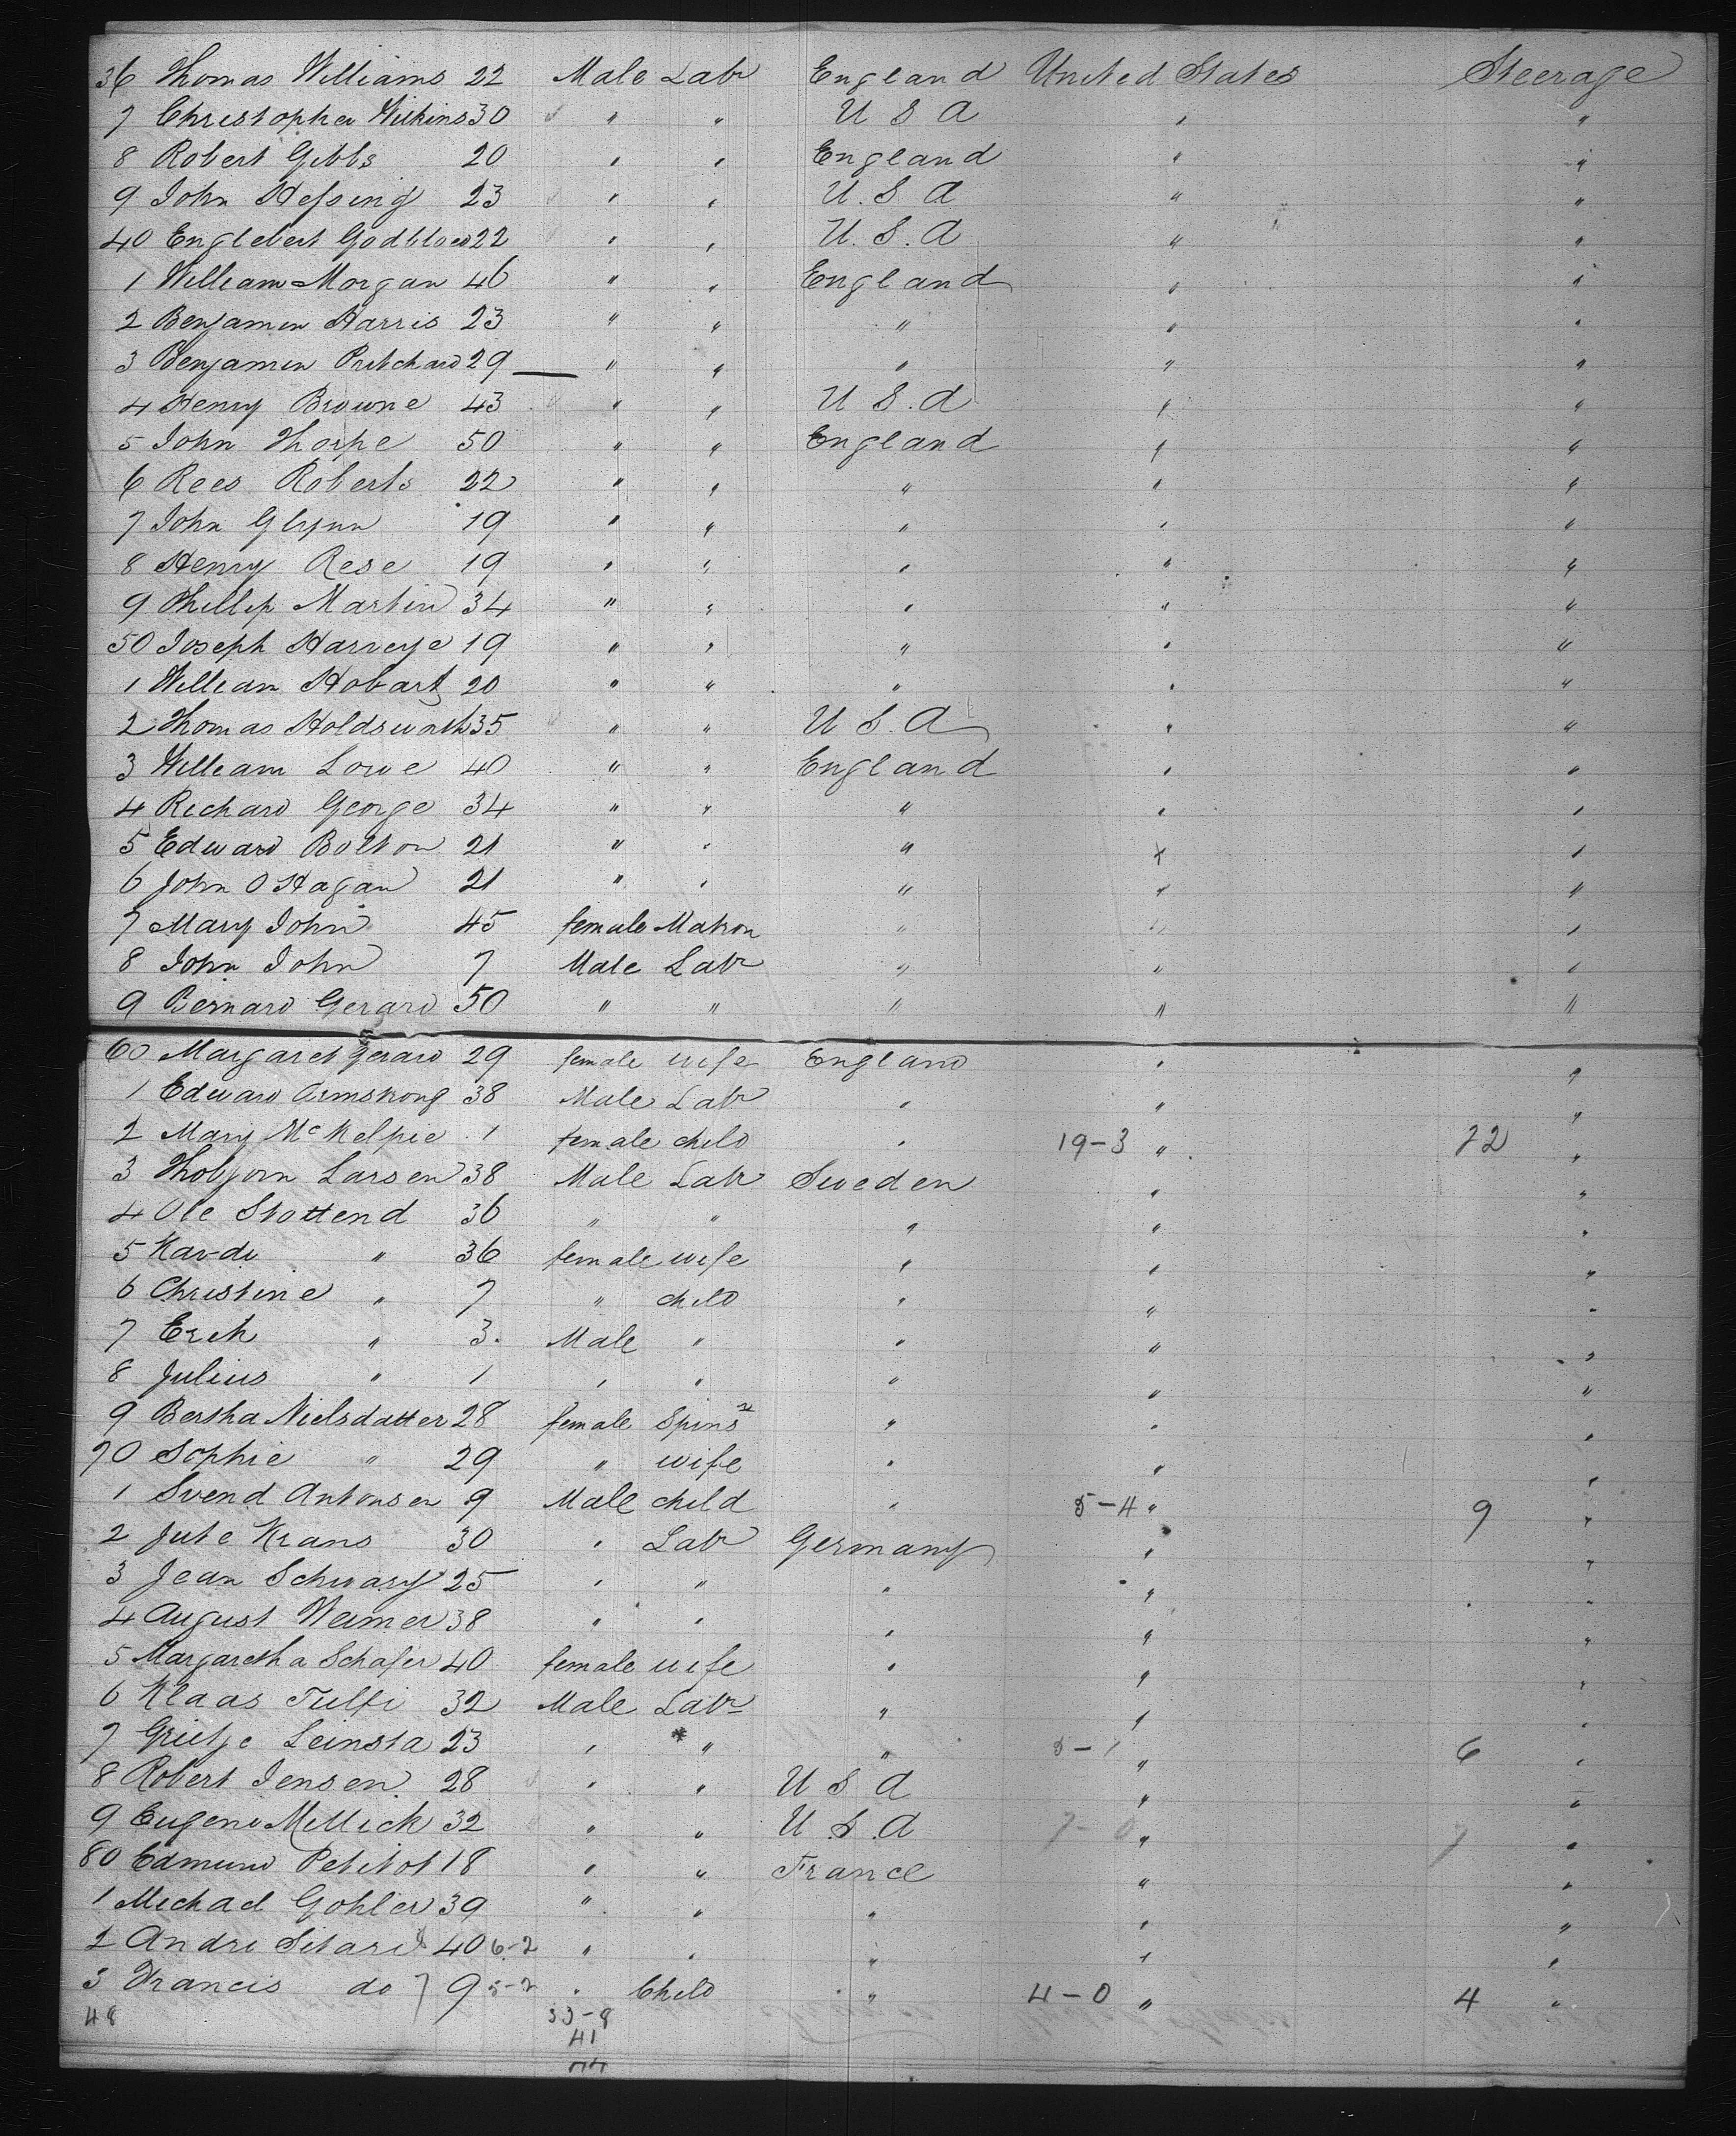 36 Thomas Williams 22 Male Labr England United States Steerage
7 Christopher Wilkins 30 " " U S A " "
8 Robert Gibbs 20 " " England " "
9 John Hessing 23 " " U. S A " "
40 Englebert 22 " " U. S. A " "
1 William Morgan 46 " " England " "
2 Benjamin Harris 23 " " " " "
3 Benjamin Pritchard 29 — " " " " "
4 Henry Browne 43 " " U S. A " "
5 John Thorpe 50 " " England " "
6 Rees Roberts 22 " " " " "
7 John Glynn 19 " " " " "
8 Henry Rese 19 " " " " "
9 Phillip Martin 34 " " " " "
50 Joseph Harveye 19 " " " " "
1 William Hobart 20 " " " " "
2 Thomas Holdsworth 35 " " U S. A " "
3 William Lowe 40 " " England " "
4 Richard George 34 " " " " "
5 Edward Bolton 21 " " " " "
6 John O Hagan 21 " " " " "
7 Mary John 45 female Matron " " "
8 John John 7 Male Labr " " "
9 Bernard Gerard 50 " " " " "
60 Margaret Gerard 29 female wife England " "
1 Edward Armstrong 38 Male Labr " " "
2 Mary McKelpie 1 female child " 19-3 " 22 "
3 Thobjorn Larsen 38 Male Labr Sweden " "
4 Ole Stottend 36 " " " " "
5 " 36 female wife " " "
6 Christine " 7 " child " " "
7 Erik " 3. Male " " " "
8 Julius " 1 " " " " "
9 Bertha Nielsdatter 28 female Spinst " " "
70 Sophie " 29 " wife " " "
1 Svend Antonsen 9 Male child " 5-4 " 9 "
2 Jute Krans 30 " Labr Germany " "
3 Jean Schwarz 25 " " " " "
4 August Weimer 38 " " " " "
5 Margaretha Schafer 40 female wife " " "
6 Klaas 32 Male Labr " " "
7 Grietje Leinsta 23 " " " 5-1 " 6 "
8 Robert Jensen 28 " " U S A " "
9 Eugene Millick 32 " " U. S. A 7-0 " 7 "
80 Edmund Petitot 18 " " France " "
1 Michael Gohler 39 " " " " "
2 Andre 40 6-2 " " " " "
3 Francis do 9 5-2 " Child " 4-0 " 4 "
48 33-8
41